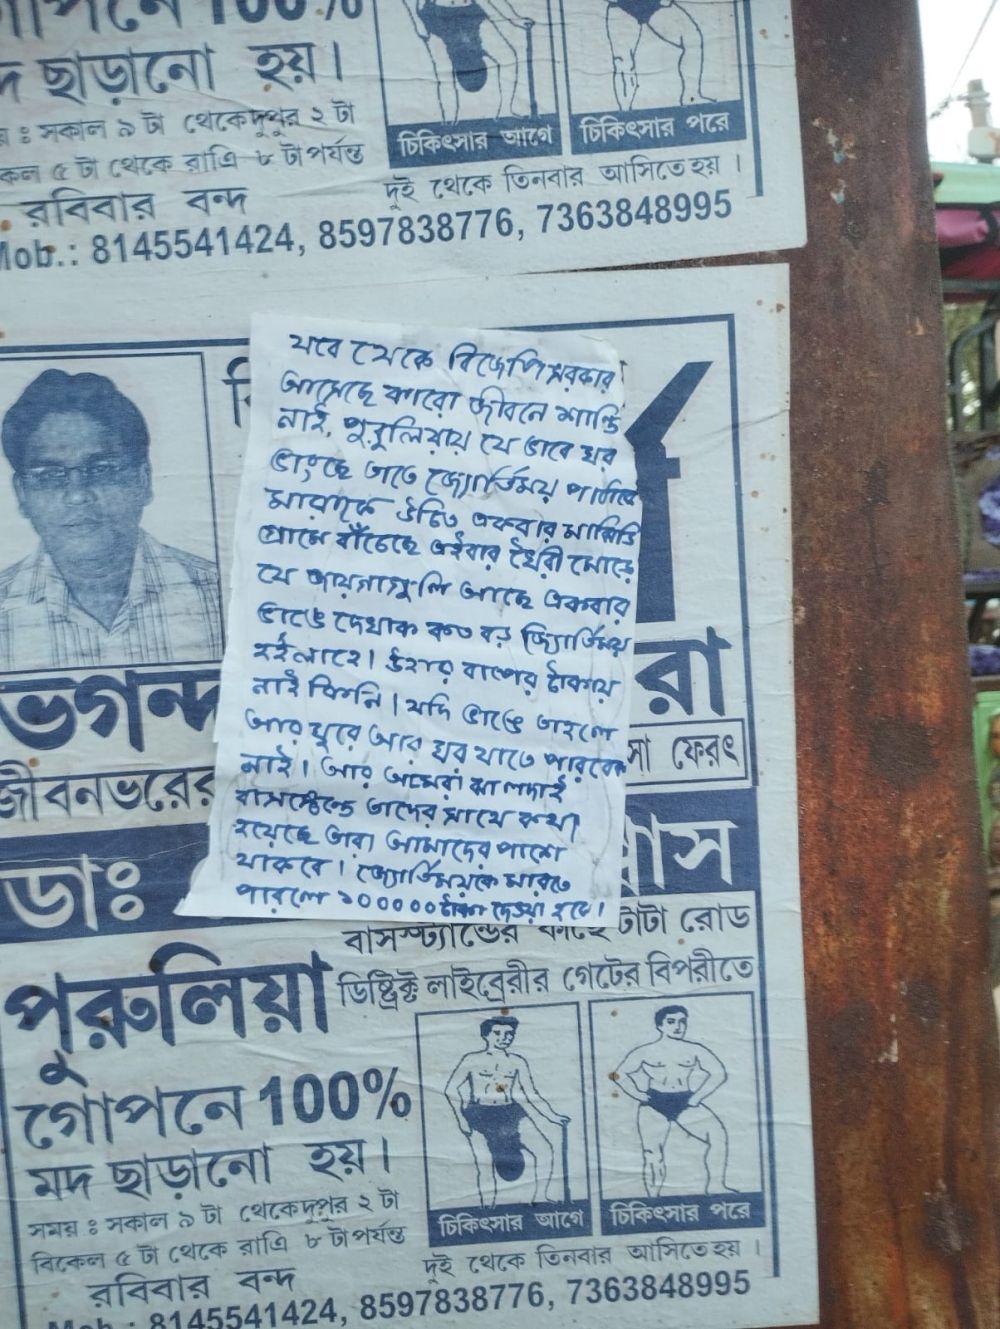 গোপনে 100%
মদ ছাড়ানো হয়।
য় : সকাল ৯ টা থেকে দুপুর ২ টা
কেল ৫ টা থেকে রাত্রি ৮ টা পর্যন্ত
রবিবার বন্দ
চিকিৎসার আগে
চিকিৎসার পরে
দুই থেকে তিনবার আসিতে হয়।
Mob.: 8145541424, 8597838776, 7363848995
যবে থেকে বিজেপি সরকার
আসেছে কারো জীবনে শান্তি
নাই, পুরুলিয়ায় যে ভাবে ঘর
ভাংছে তাতে জ্যোর্তিময়
উচিত একবার
গ্রামে বাঁচেছে এইবার মোড়ে
যে জায়গাগুলি আছে একবার
ভাঙে দেখাক কত বড় জ্যোর্তিময়
হইলাহে। উহার বাপের টাকায়
নাই কিনি। যদি ভাঙে তাহলে
আর ঘুরে আর ঘর যাতে পারবেক
নাই। আর আমরা ঝালদাই
বাসস্টেন্ডে তাদের সাথে কথা
হয়েছে তারা আমাদের পাশে
থাকবে। জ্যোর্তিময়কে মারতে
পারলে ১০০০০০ টাকা দেওয়া হবে।
ভগন্দ
রা
জীবনভরের
সা ফেরৎ
ডাঃ
াস
বাসস্ট্যান্ডের কাছে টাটা রোড
পুরুলিয়া
ডিষ্ট্রিক্ট লাইব্রেরীর গেটের বিপরীতে
গোপনে 100%
মদ ছাড়ানো হয়।
সময় : সকাল ৯ টা থেকে দুপুর ২ টা
বিকেল ৫ টা থেকে রাত্রি ৮ টা পর্যন্ত
রবিবার বন্দ
চিকিৎসার আগে
চিকিৎসার পরে
দুই থেকে তিনবার আসিতে হয়।
Mob.: 8145541424, 8597838776, 7363848995